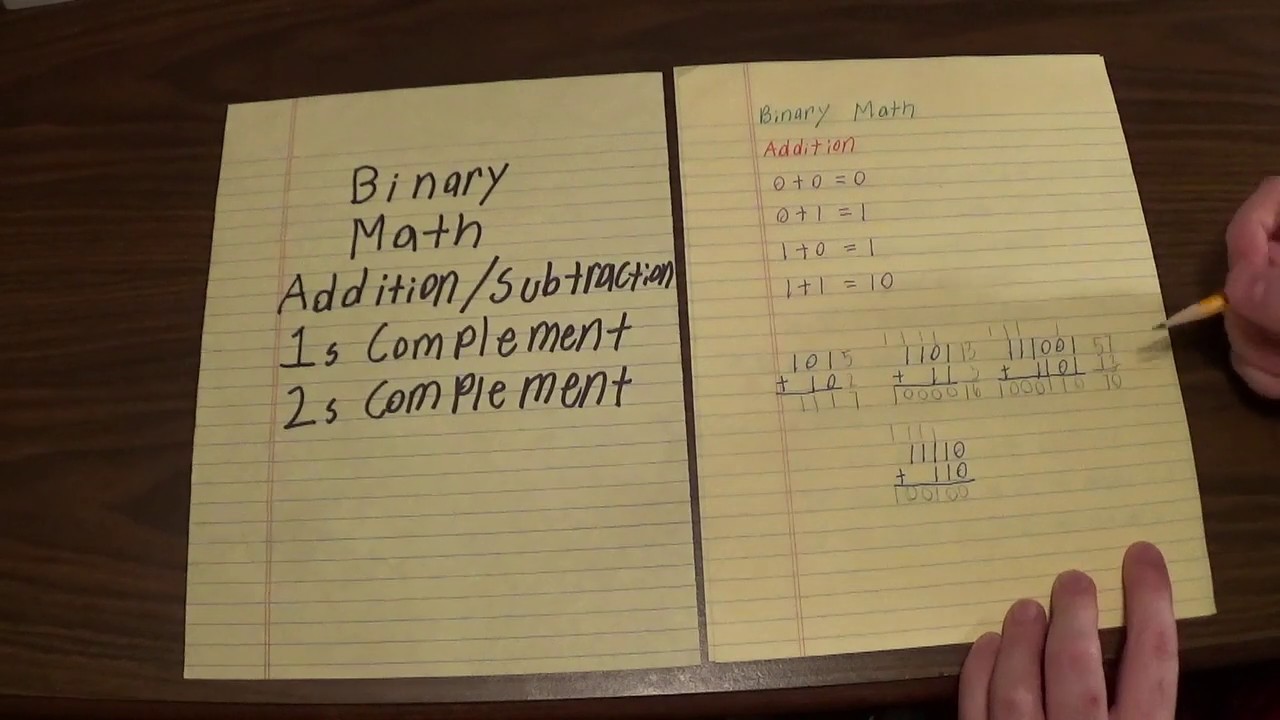 Binary
Math
Addition/Subtraction
1s Complement
2s Complement
Binary Math
Addition
0+0=0
0+1=1
1+0=1
1+1=10
101 5
+ 10 2
111 7
1111
1101 13
+ 11 3
10000 16
111 1
111001 57
+ 1101 13
1000110 70
1111
11110
+ 110
100100